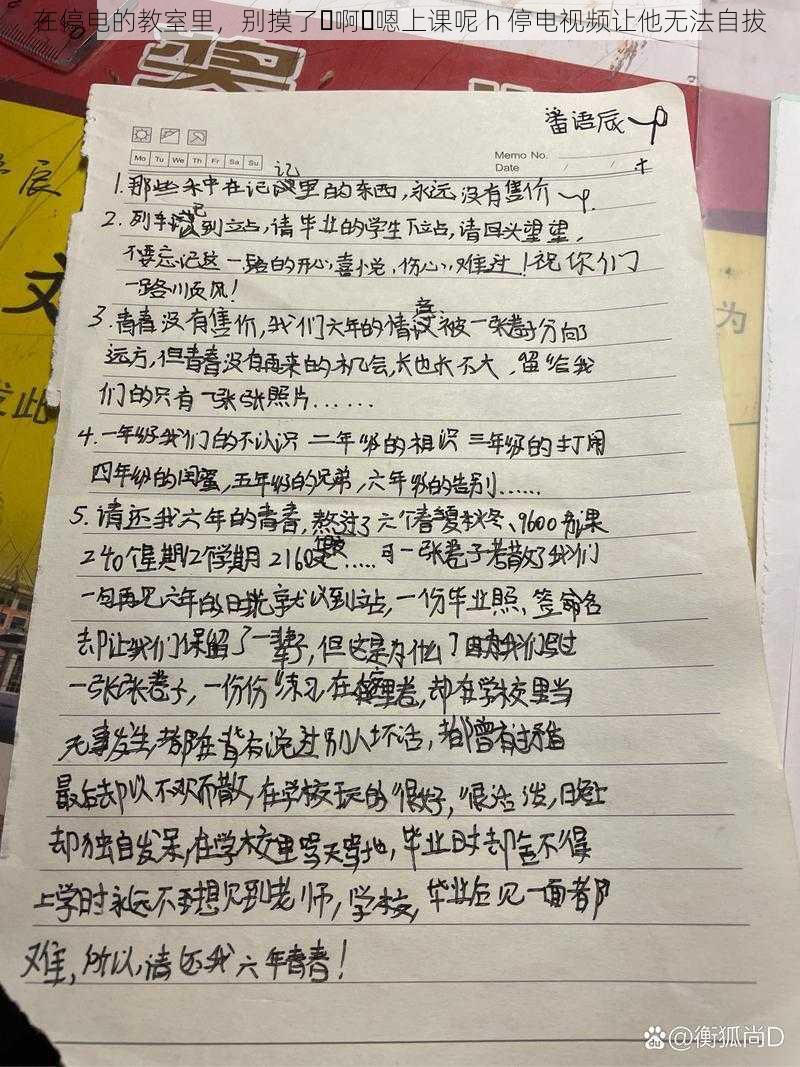 在停电的教室里，别摸了▯啊▯嗯上课呢 h 停电视频让他无法自拔
奖
辰
文
为
发此
番语辰
Mo Tu We Th Fr Sa Su
Memo No.
Date / /
记
1.那些永中在记里的东西,永远没有售价
2.列车到立占,请毕业的学生下立占,请回头望望,
不要忘记这一路的开心,喜悦,伤心,难过!祝你们
一路川页风!
3.青春没有售价,我们六年的情被一张卷子分向
远方,但青春没有再来的机会,长也长不大,留给我
们的只有一张张照片......
4.一年级我们的不认识 二年级的相识 三年级的打闹
四年级的闺蜜,五年级的兄弟,六年级的告别......
5.请还我六年的青春,熬过了六个春夏秋冬、9600节课
240个星期12个学期 2160.....可一张卷子若散了我们
一句再见六年的时光就以到立占,一份毕业照,签命名
却让我们保留了一辈子,但这是为什么?因为我们写过
一张张卷子,一份份练习,在里卷,却在学校里当
无事发生,都在背有说过别人坏话,都曾有过矛盾
最后却以不欢而散,在学校玩的很好,很活泼,日免上
却独自发呆,在学校里骂天骂地,毕业时却舍不得
上学时永远不想见到老师,学校,毕业后见一面都
难,所以,请还我六年青春!
Baidu @衡狐尚D